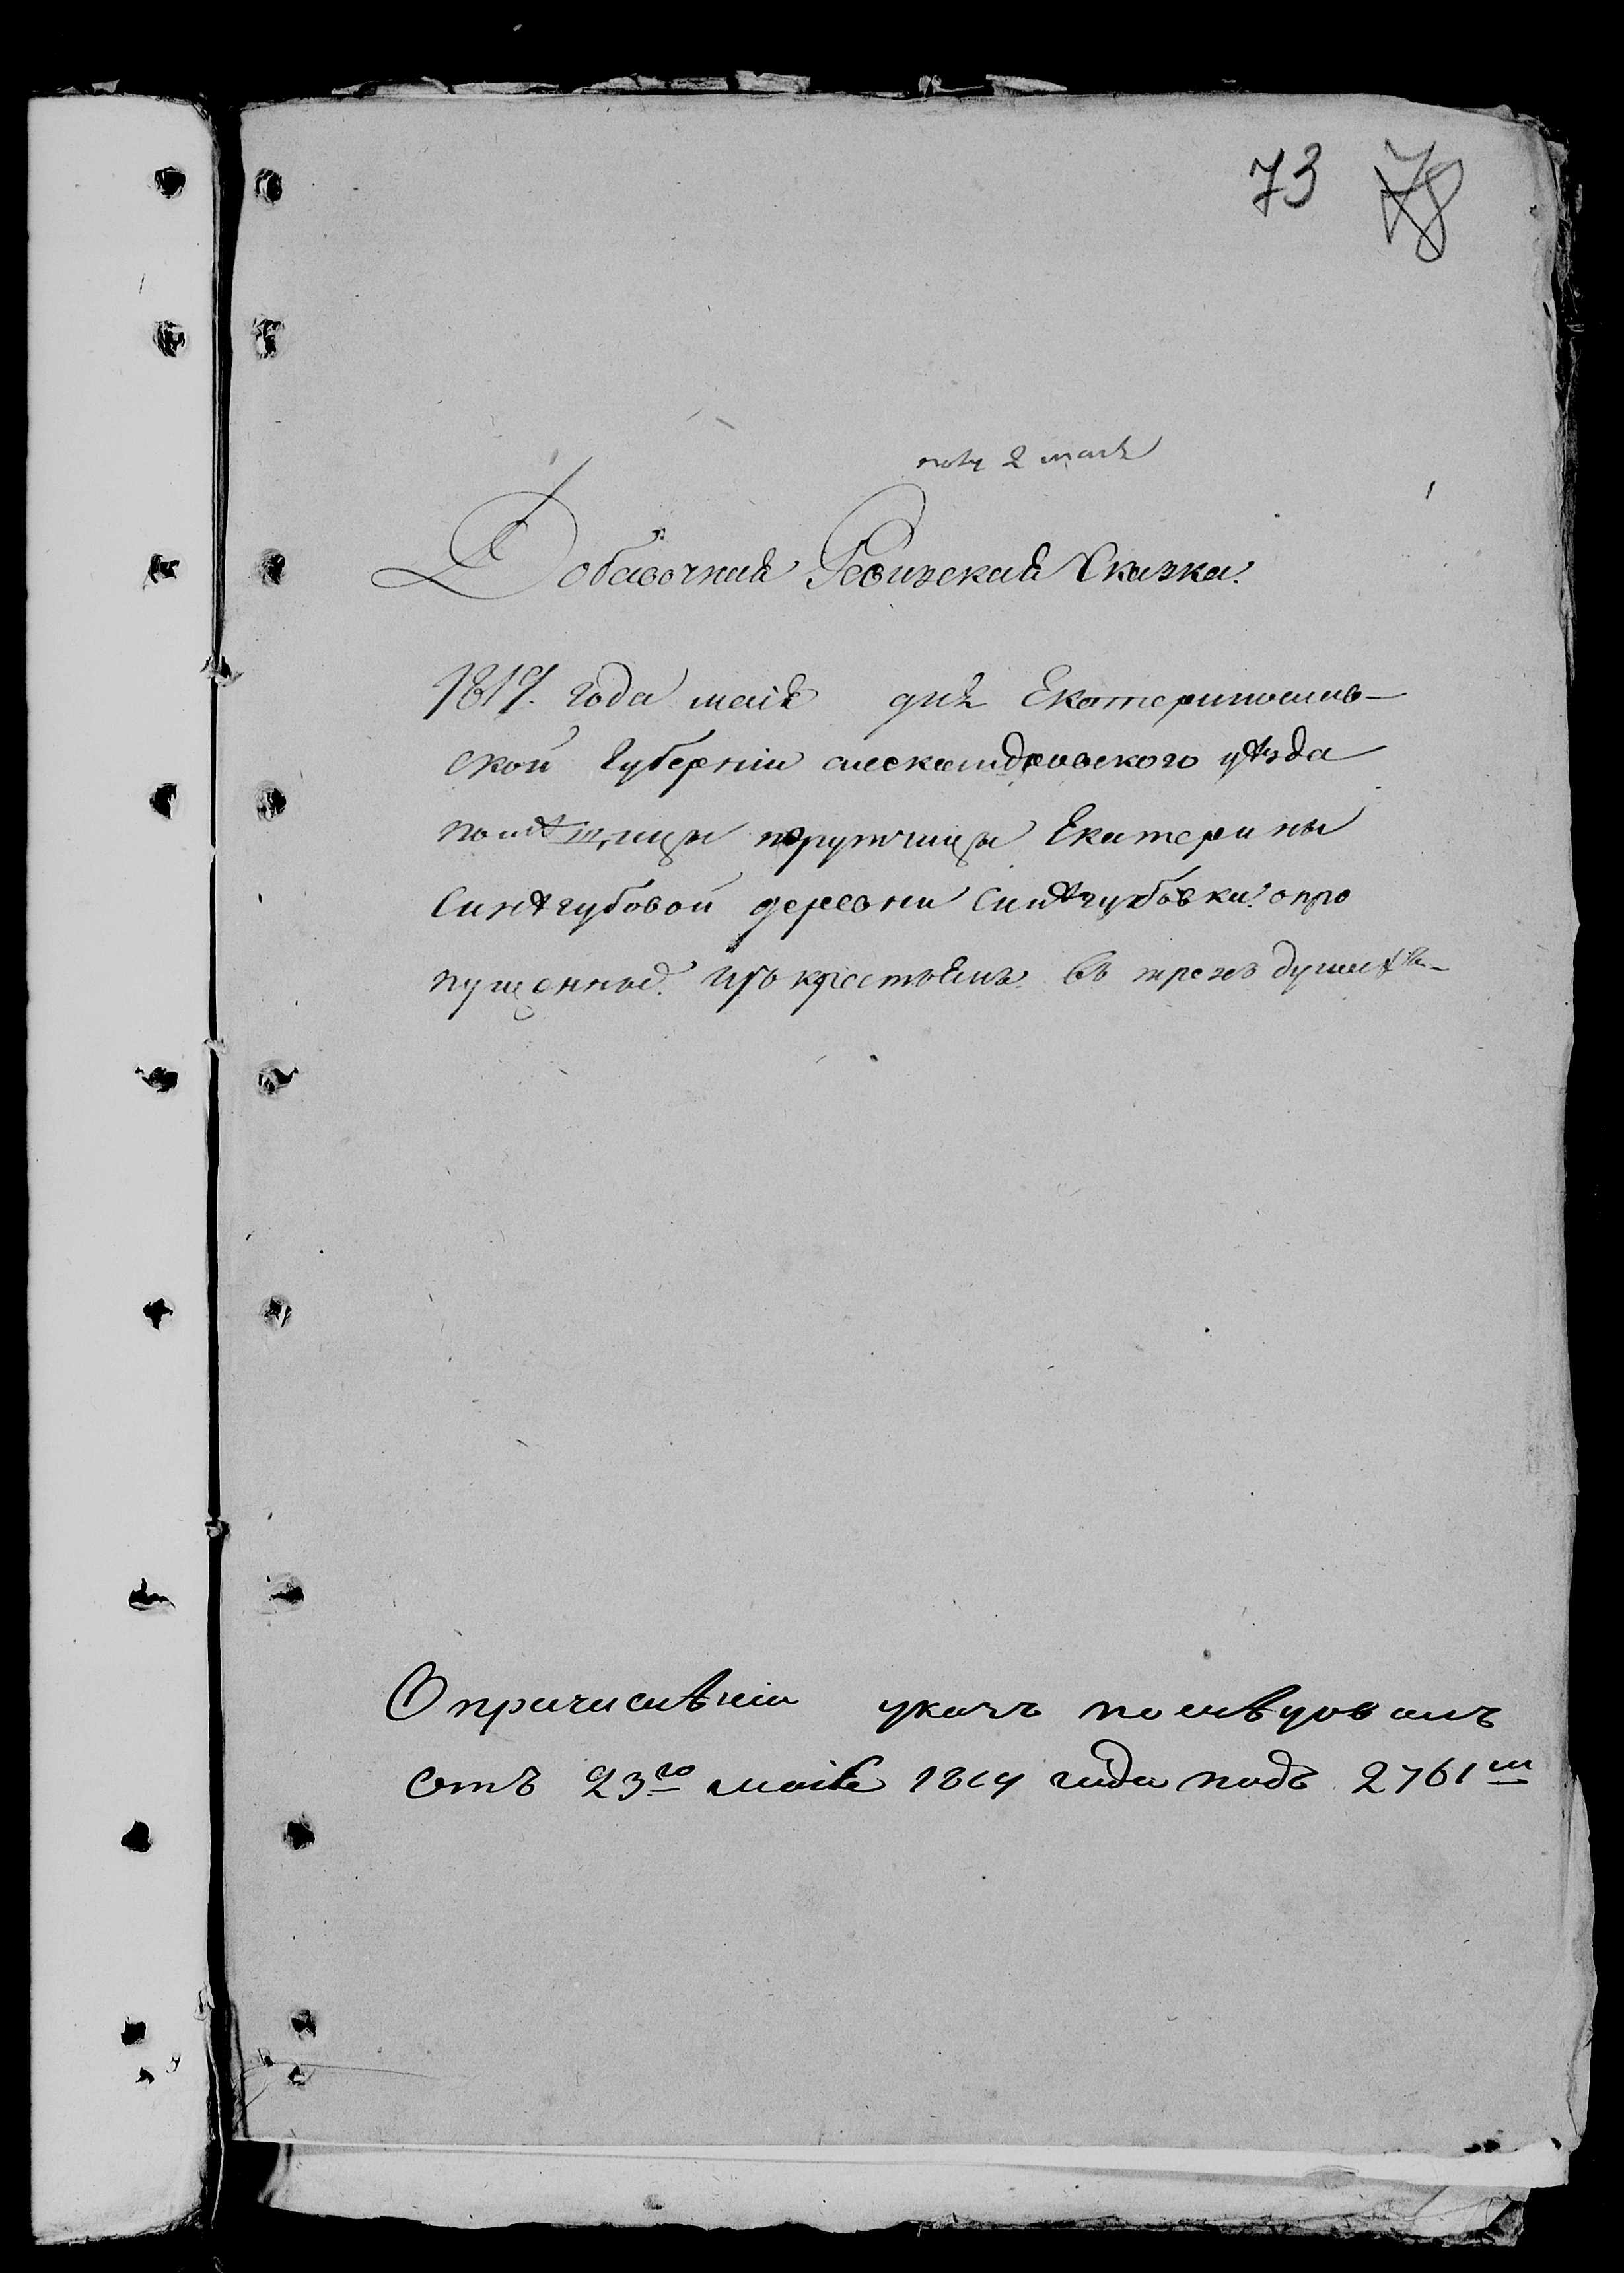 73 78
пол. 2 мая
Добавочная Ревизская Сказка.
1819. года маія дня Екатеринослав-
ской Губерніи александровского уѣзда
помѣщицы порутчицы Екатерины
Синѣгубовой деревни Синѣгубовки. о про
пущенныхъ изъ крестьянъ въ трехъ душахъ
О причисленіи указъ послѣдовалъ
отъ 23го маія 1819 года подъ 2761м